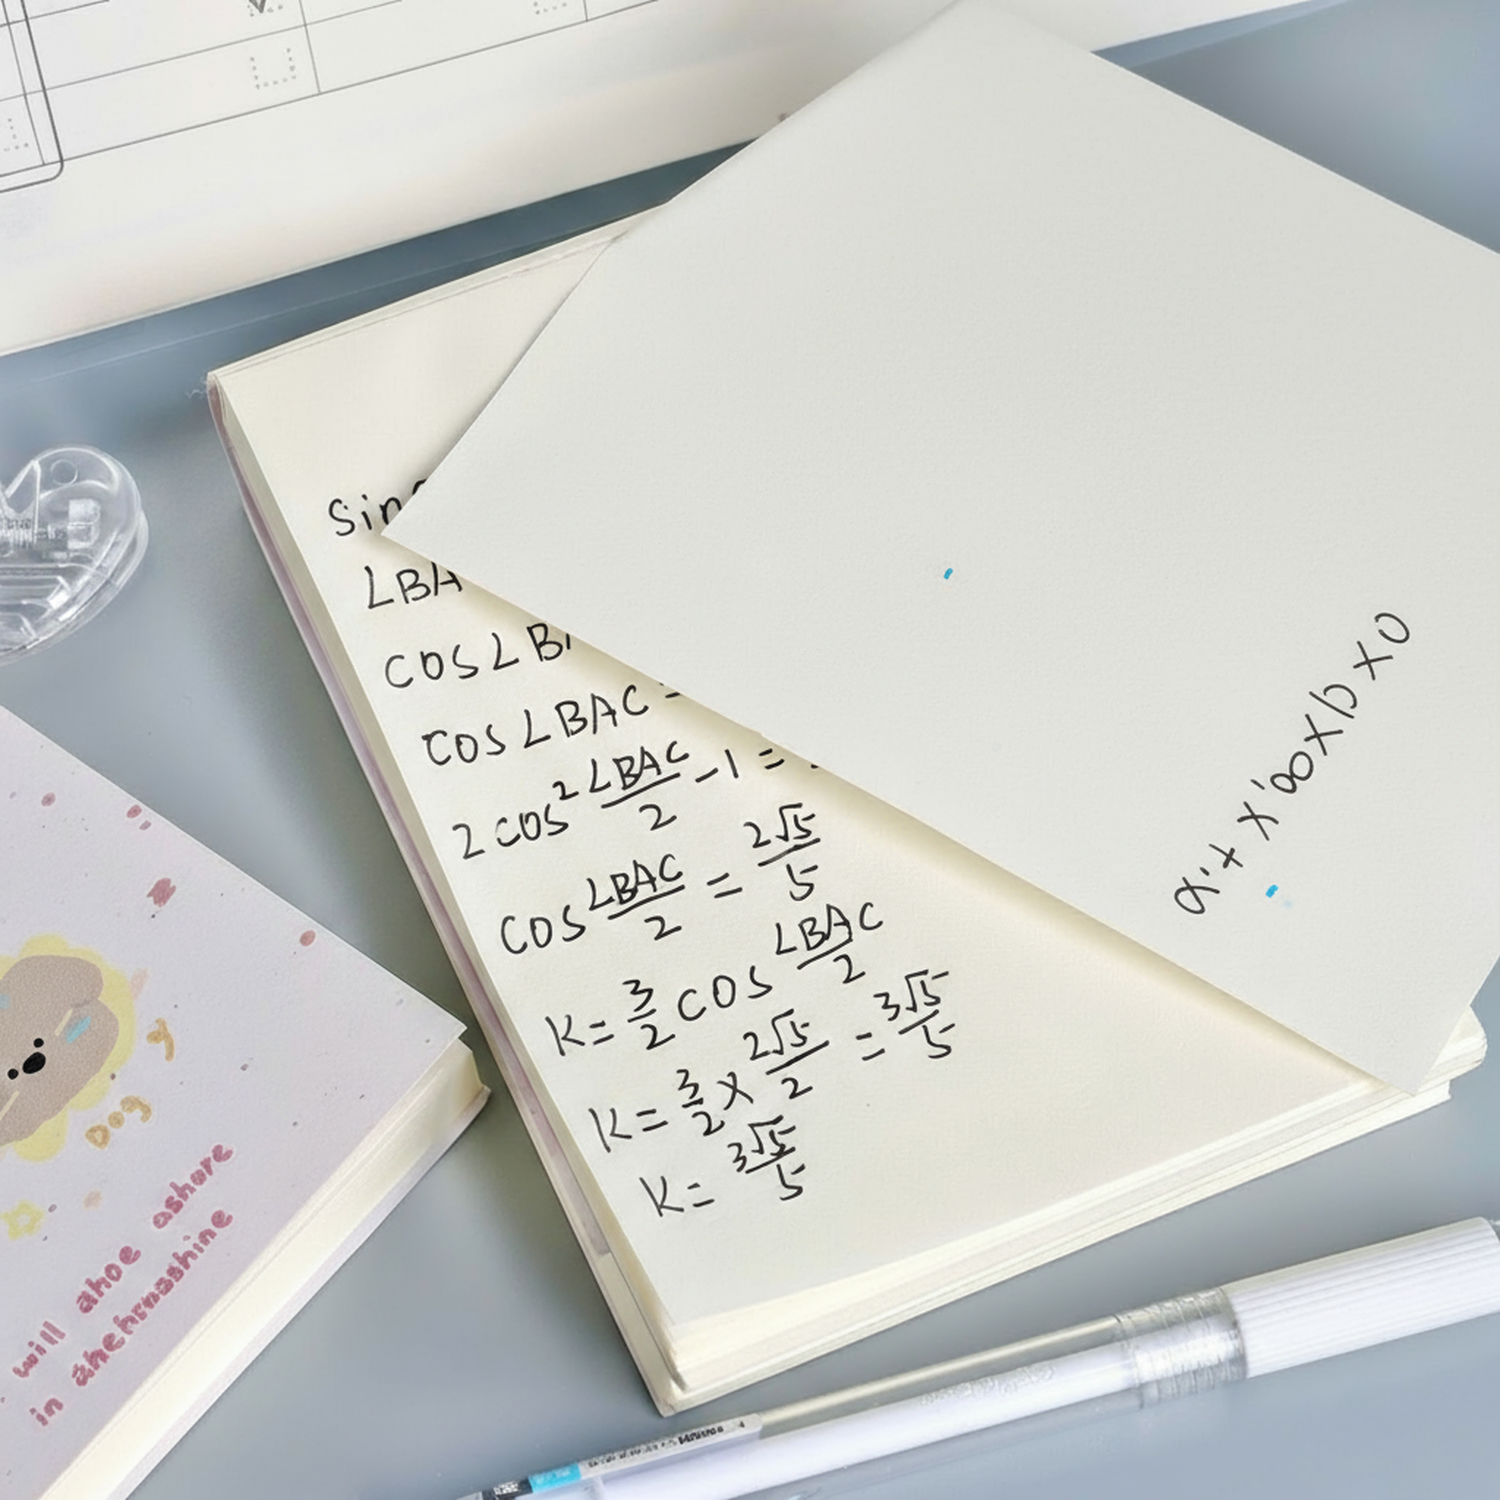 Sin
∠BA
cos∠B
cos∠BAC =
2cos²∠BAC/2 -1 =
cos ∠BAC/2 = 2√5/5
K = 3/2 cos ∠BAC/2
K = 3/2 × 2√5/2 = 3√5/5
K = 3√5/5
Dog
will ahoe ashore
in ahehrnashine